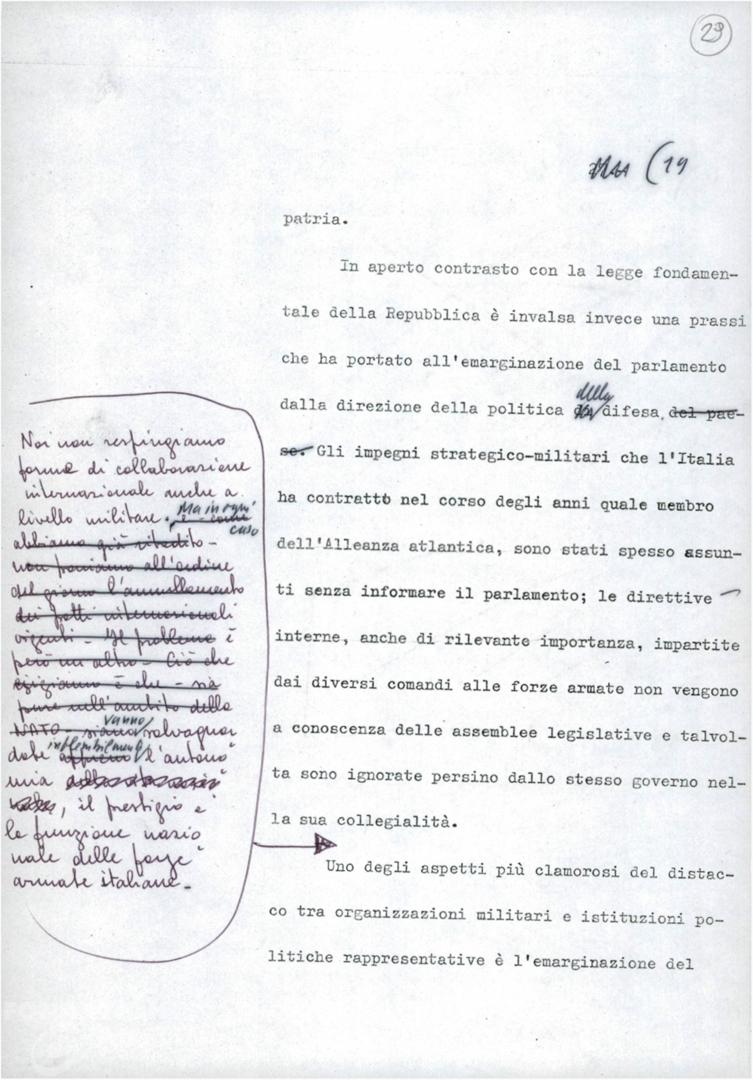 29
(19
patria.
In aperto contrasto con la legge fondamen-
tale della Repubblica è invalsa invece una prassi
che ha portato all'emarginazione del parlamento
della
dalla direzione della politica difesa. del pae-
se. Gli impegni strategico-militari che l'Italia
ha contratto nel corso degli anni quale membro
dell'Alleanza atlantica, sono stati spesso assun-
ti senza informare il parlamento; le direttive
interne, anche di rilevante importanza, impartite
dai diversi comandi alle forze armate non vengono
a conoscenza delle assemblee legislative e talvol-
ta sono ignorate persino dallo stesso governo nel-
la sua collegialità.
Uno degli aspetti più clamorosi del distac-
co tra organizzazioni militari e istituzioni po-
litiche rappresentative è l'emarginazione del
Noi non respingiamo
forme di collaborazione
internazionale anche a
livello militare. Ma in ogni
caso
abbiamo già ribadito -
non poniamo all'ordine
del giorno l'annullamento
dei patti internazionali
vigenti - Il problema è
però un altro - Ciò che
esigiamo è che - sia
pure nell'ambito della
NATO - siano vanno salvaguar
date appieno inflessibilmente l'autono
mia
, il prestigio e
la funzione nazio
nale delle forze
armate italiane.